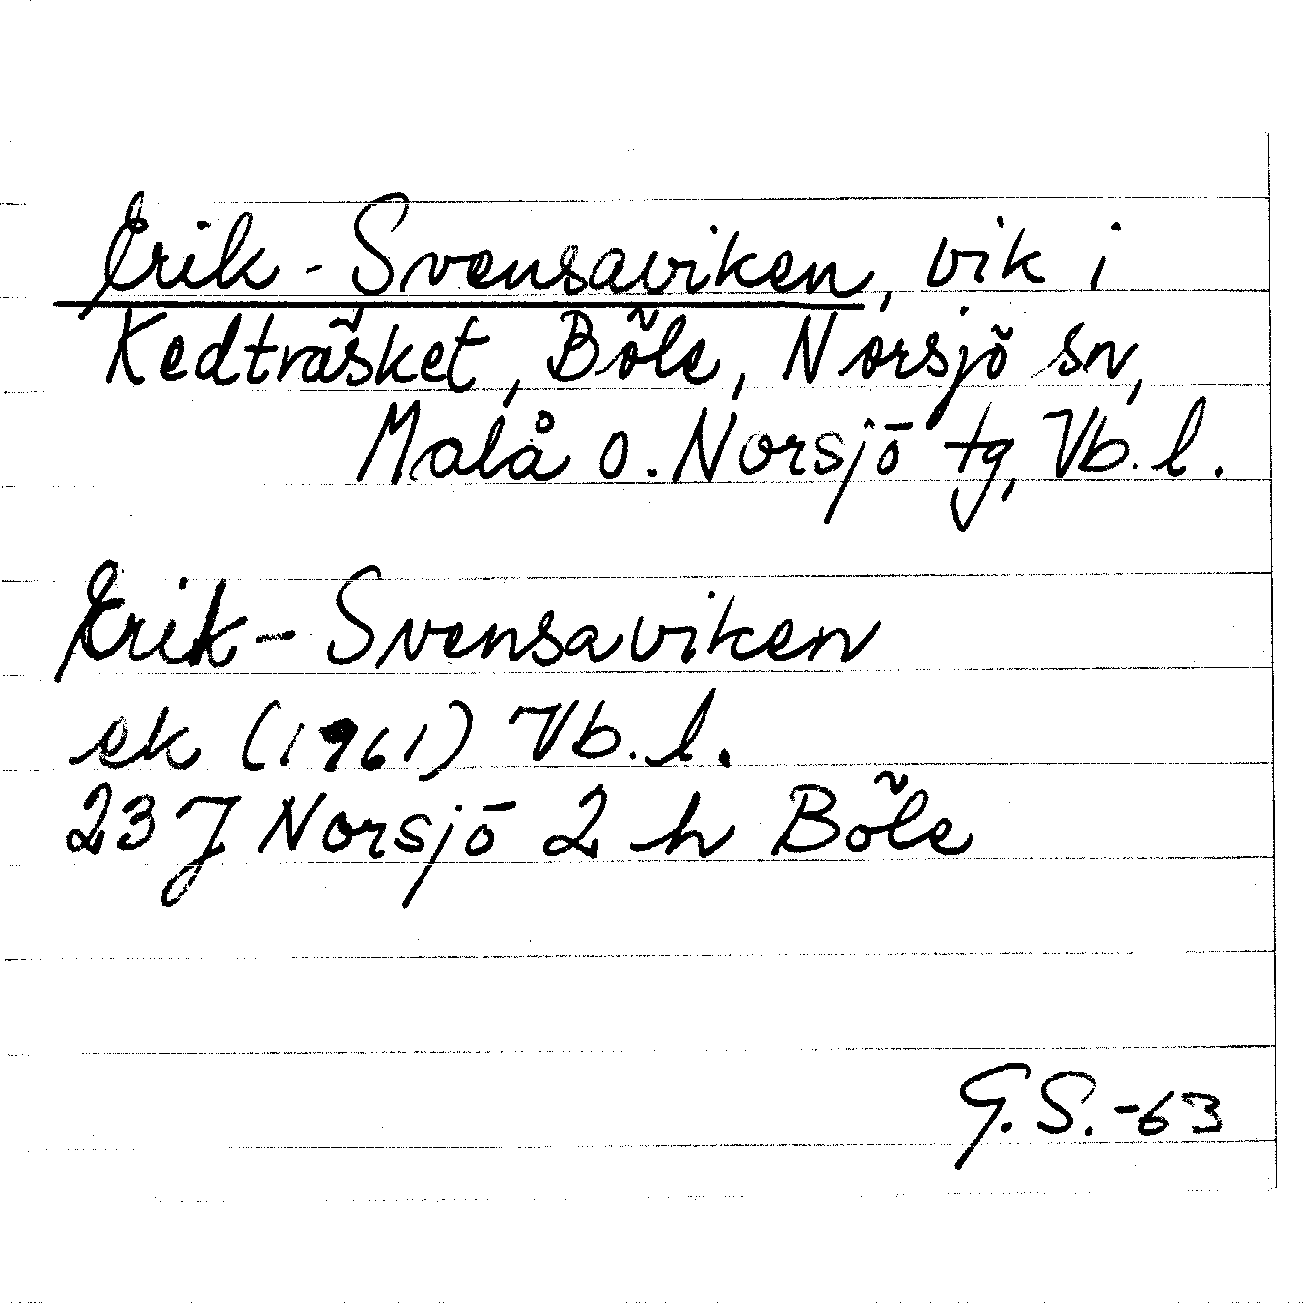 Erik-Svensaviken, vik i
Kedträsket, Böle, Norsjö sn,
Malå o. Norsjö tg, Vb.l.
Erik-Svensaviken
ek (1961) Vb.l.
23J Norsjö 2 h Böle
G.S.-63